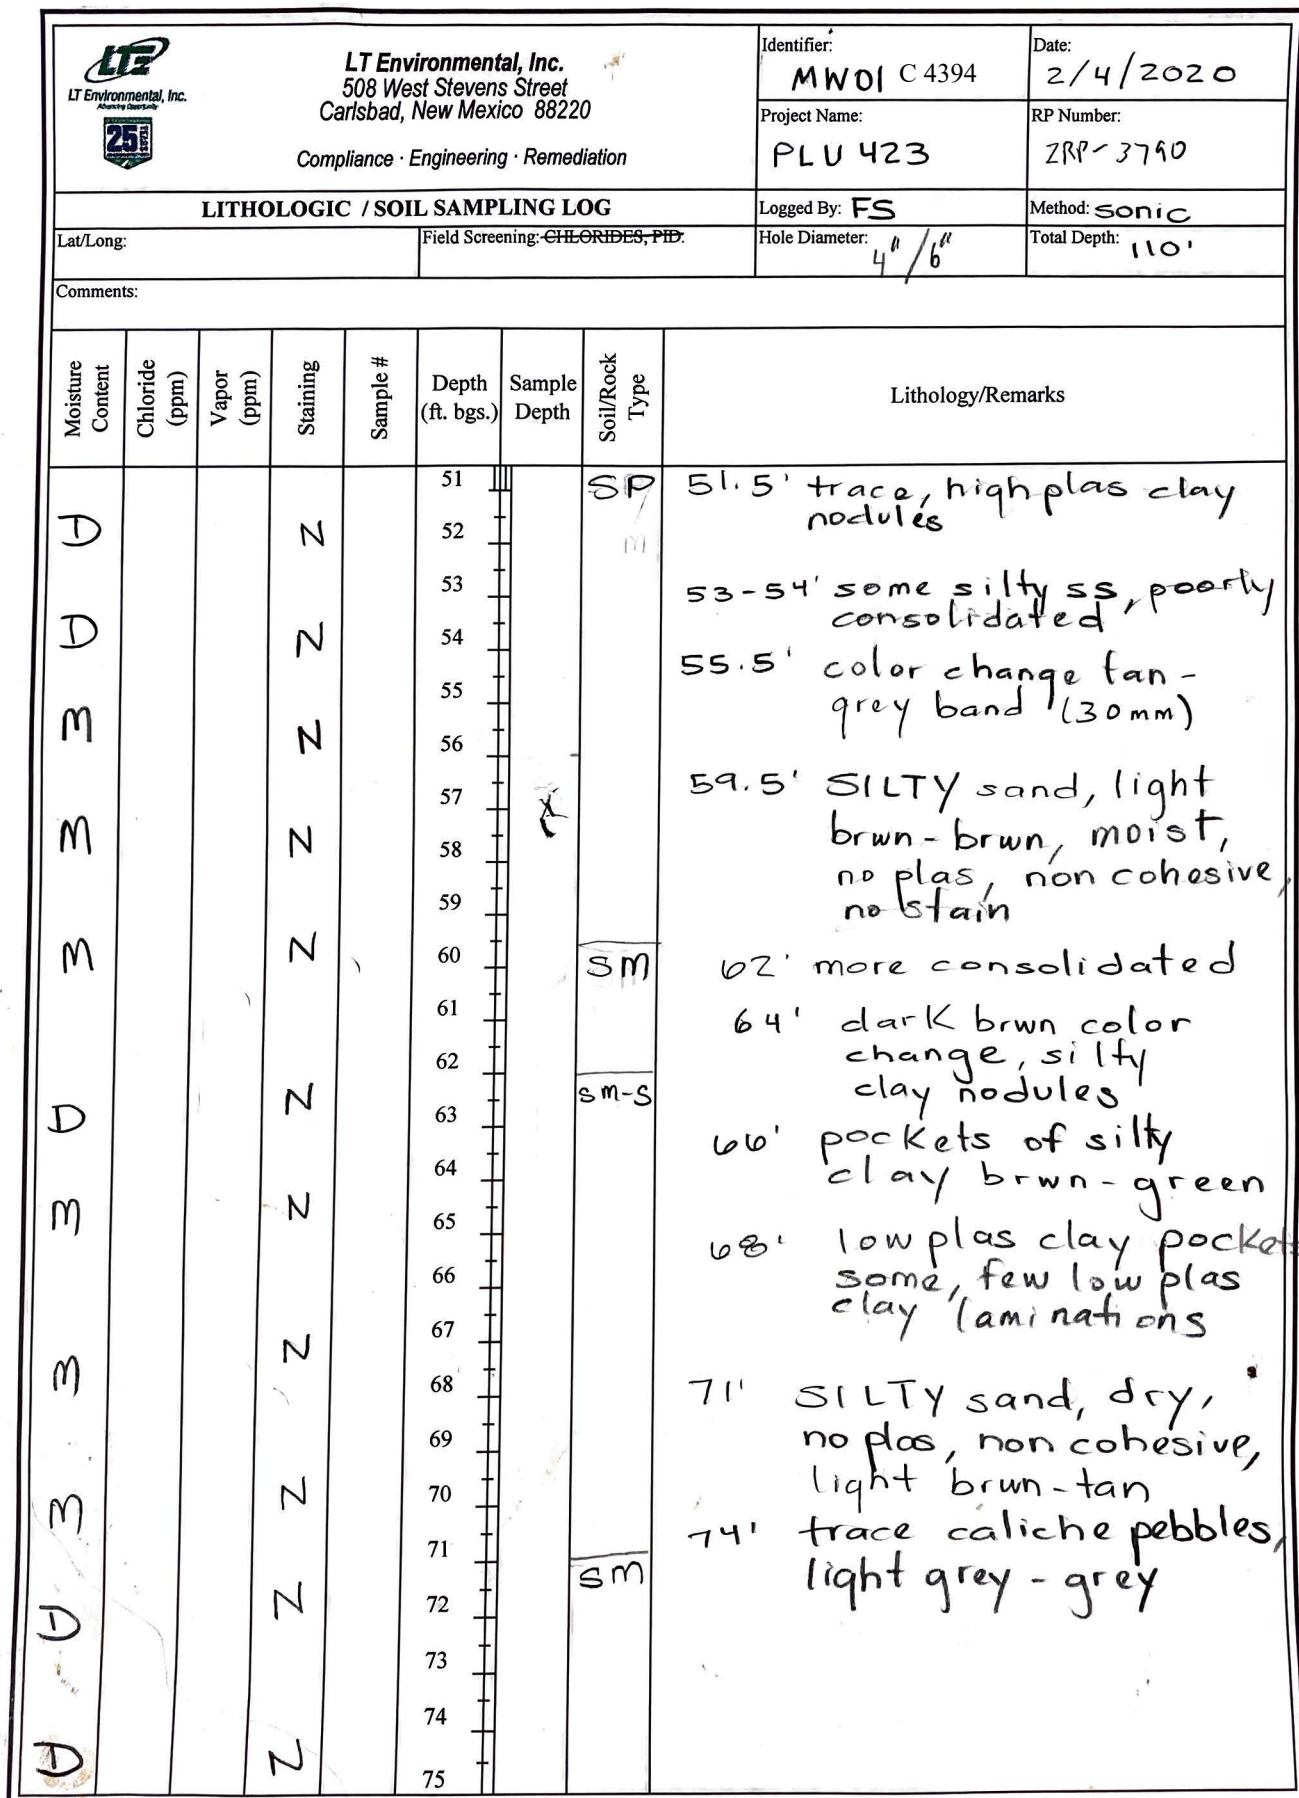 LTE
LT Environmental, Inc.
Advancing Opportunity
25 YEARS
LT Environmental, Inc.
508 West Stevens Street
Carlsbad, New Mexico 88220
Compliance · Engineering · Remediation
Identifier:
MW01 C 4394
Date:
2/4/2020
Project Name:
PLU 423
RP Number:
2RP-3790
LITHOLOGIC / SOIL SAMPLING LOG
Logged By: FS
Method: sonic
Lat/Long:
Field Screening: CHLORIDES, PID.
Hole Diameter: 4"/6"
Total Depth: 110'
Comments:
Moisture Content
Chloride (ppm)
Vapor (ppm)
Staining
Sample #
Depth (ft. bgs.)
Sample Depth
Soil/Rock Type
Lithology/Remarks
51 SP 51.5' trace, high plas clay
nodules
D N 52
53 53-54' some silty ss, poorly
consolidated
D N 54
55 55.5' color change tan-
grey band (30mm)
M N 56
57 59.5' SILTY sand, light
M N 58 brwn-brwn, moist,
no plas, non cohesive,
59 no stain
M N 60 SM 62' more consolidated
61 64' dark brwn color
change, silty
62 clay nodules
D N 63 sm-s
66' pockets of silty
64 clay brwn-green
M N 65 68' low plas clay pockets
66 some, few low plas
clay laminations
67
M N 68 71' SILTY sand, dry,
69 no plas, non cohesive,
M N 70 light brwn-tan
71 74' trace caliche pebbles,
D N 72 SM light grey - grey
73
74
D N 75